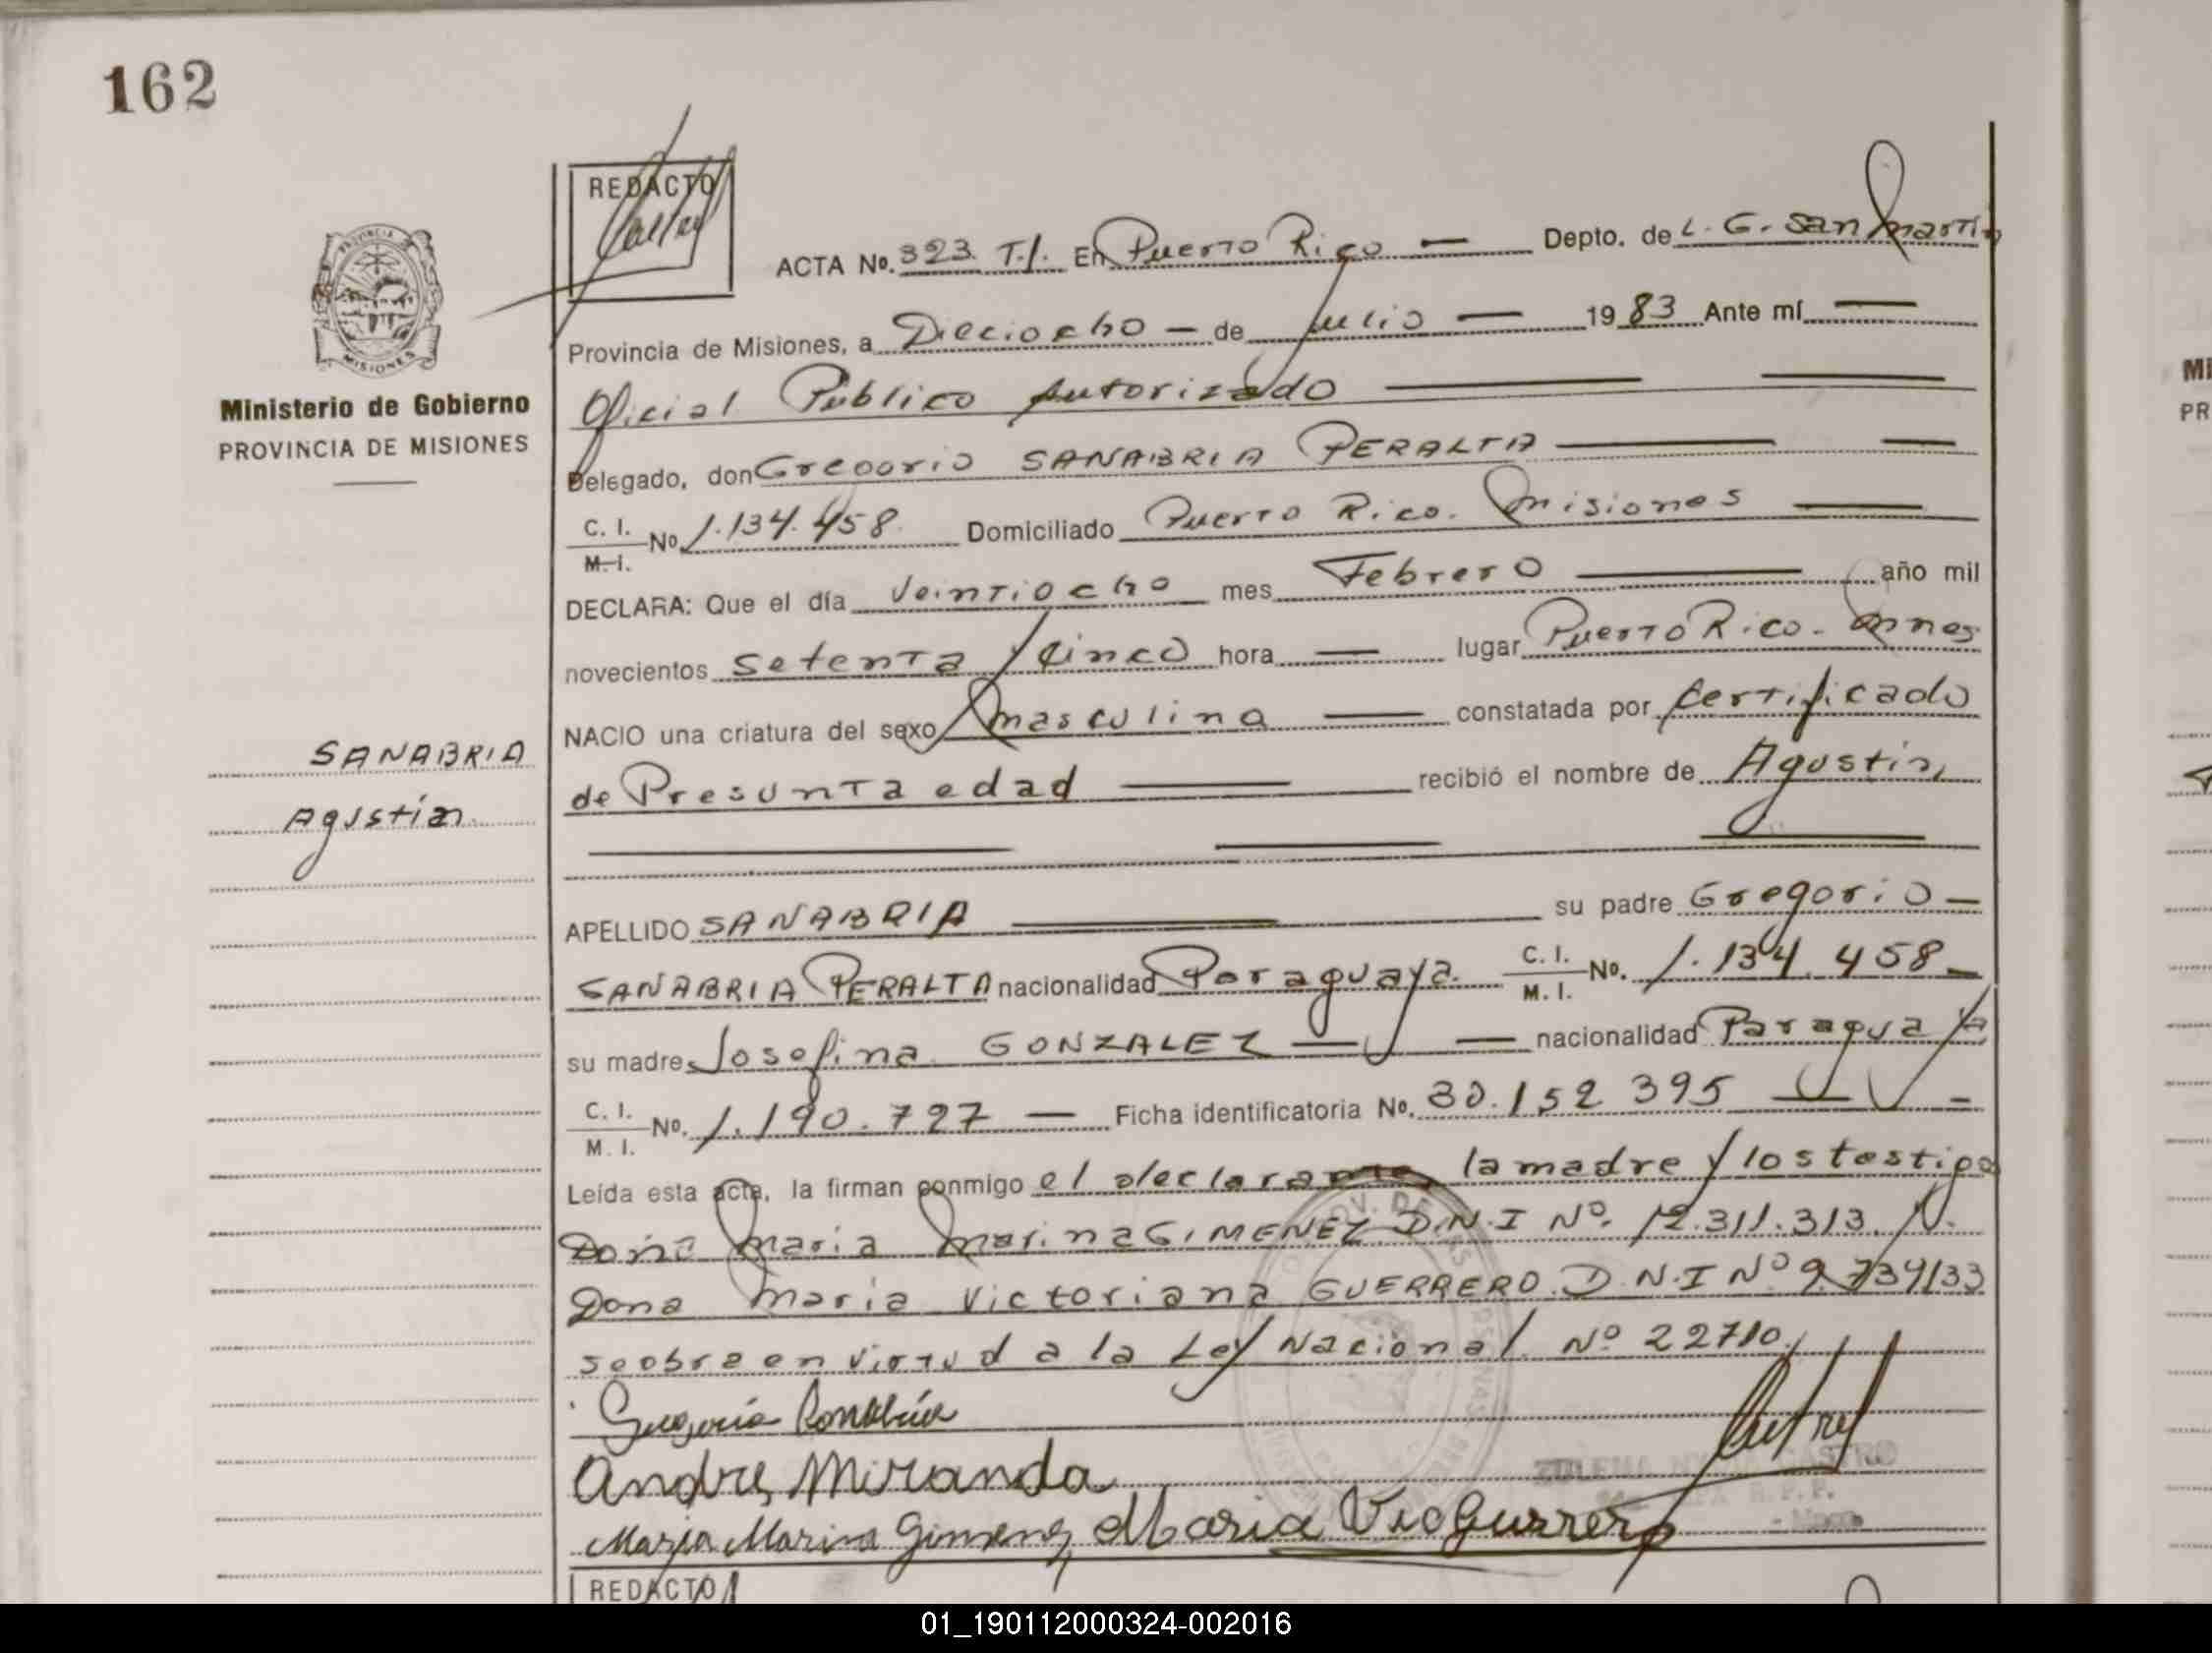 162
REDACTO
ACTA No. 323. T.I. En Puerto Rico — Depto. de L. G. San Martin
Provincia de Misiones, a Dieciocho — de Julio — 1983 Ante mí —
Oficial Público Autorizado
PROVINCIA
MISIONES
Ministerio de Gobierno
PROVINCIA DE MISIONES
Delegado, don Gregorio SANABRIA PERALTA
C. I.
M. I.
No. 1.134.458. Domiciliado Puerto Rico. Misiones
DECLARA: Que el día Veintiocho mes Febrero — año mil
novecientos setenta y cinco hora — lugar Puerto Rico. Mnes
NACIO una criatura del sexo masculino — constatada por Certificado
SANABRIA
Agustín
de Presunta edad — recibió el nombre de Agustín,
APELLIDO SANABRIA — su padre Gregorio —
SANABRIA PERALTA nacionalidad Paraguaya. C. I. No. 1.134.458 —
M. I.
su madre Josefina GONZALEZ — nacionalidad Paraguaya
C. I. No. 1.190.727 — Ficha identificatoria No. 30.152.395 —
M. I.
Leída esta acta, la firman conmigo el declarante, la madre y los testigos
Doña Maria Marina GIMENEZ D.N.I Nº. 12.311.313. y.
Dona Maria Victoriana GUERRERO. D.N.I Nº 9.734133
se obra en virtud a la Ley Nacional Nº 22710.
Gregorio Sanabria
Andres Miranda
ZULEMA CASTRO
Maria Marina Gimenez Maria Vic Guerrero
REDACTO
01_190112000324-002016